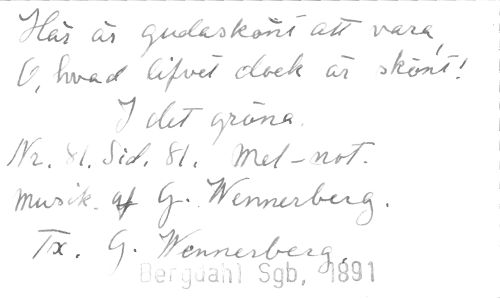 Här är gudaskönt att vara,
O, hvad lifvet dock är skönt!
I det gröna.
Nr. 81. Sid. 81. Mel-not.
Musik. af G. Wennerberg.
Tx. G. Wennerberg.
Bergdahl Sgb, 1891